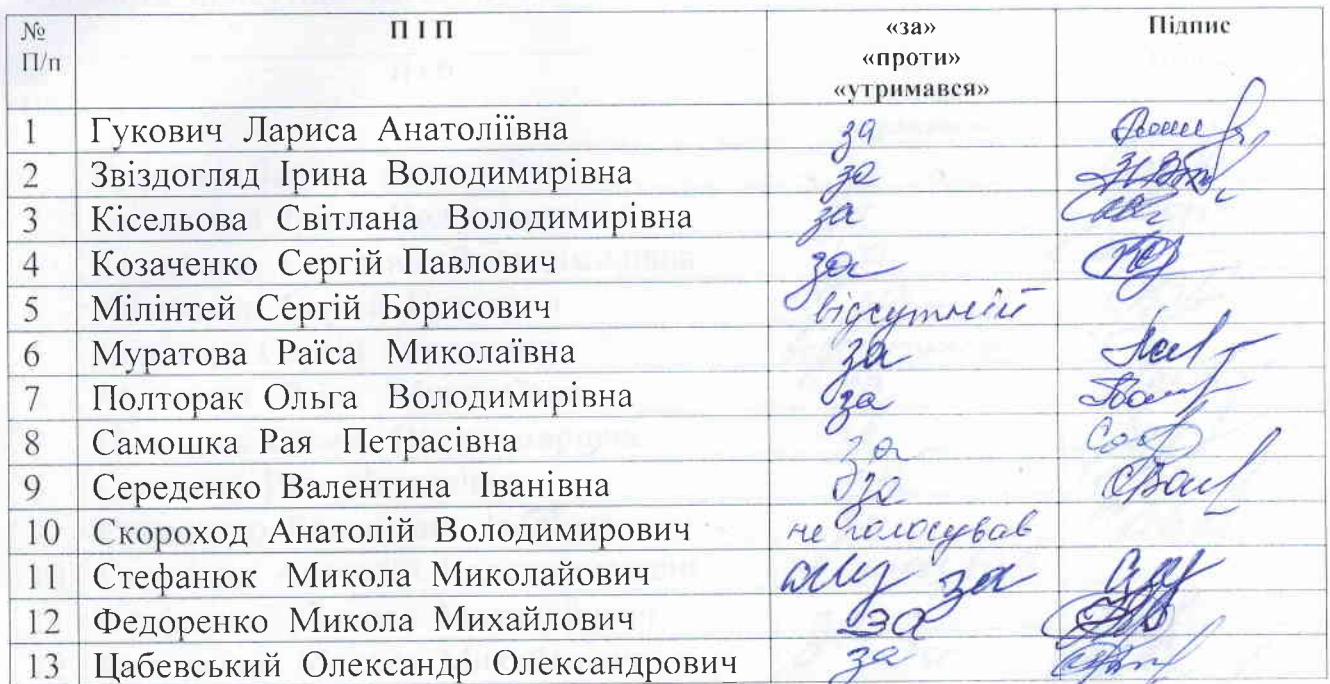 № П/п П І П «за» «проти» «утримався» Підпис
1 Гукович Лариса Анатоліївна за
2 Звіздогляд Ірина Володимирівна за
3 Кісельова Світлана Володимирівна за
4 Козаченко Сергій Павлович за
5 Мілінтей Сергій Борисович відсутній
6 Муратова Раїса Миколаївна за
7 Полторак Ольга Володимирівна за
8 Самошка Рая Петрасівна за
9 Середенко Валентина Іванівна за
10 Скороход Анатолій Володимирович не голосував
11 Стефанюк Микола Миколайович за
12 Федоренко Микола Михайлович за
13 Цабевський Олександр Олександрович за